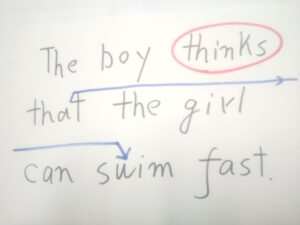 The boy thinks
that the girl
can swim fast.